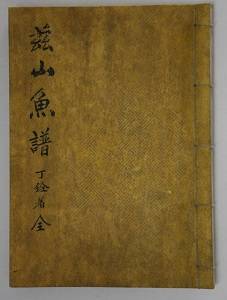 茲山魚譜
丁銓著 全